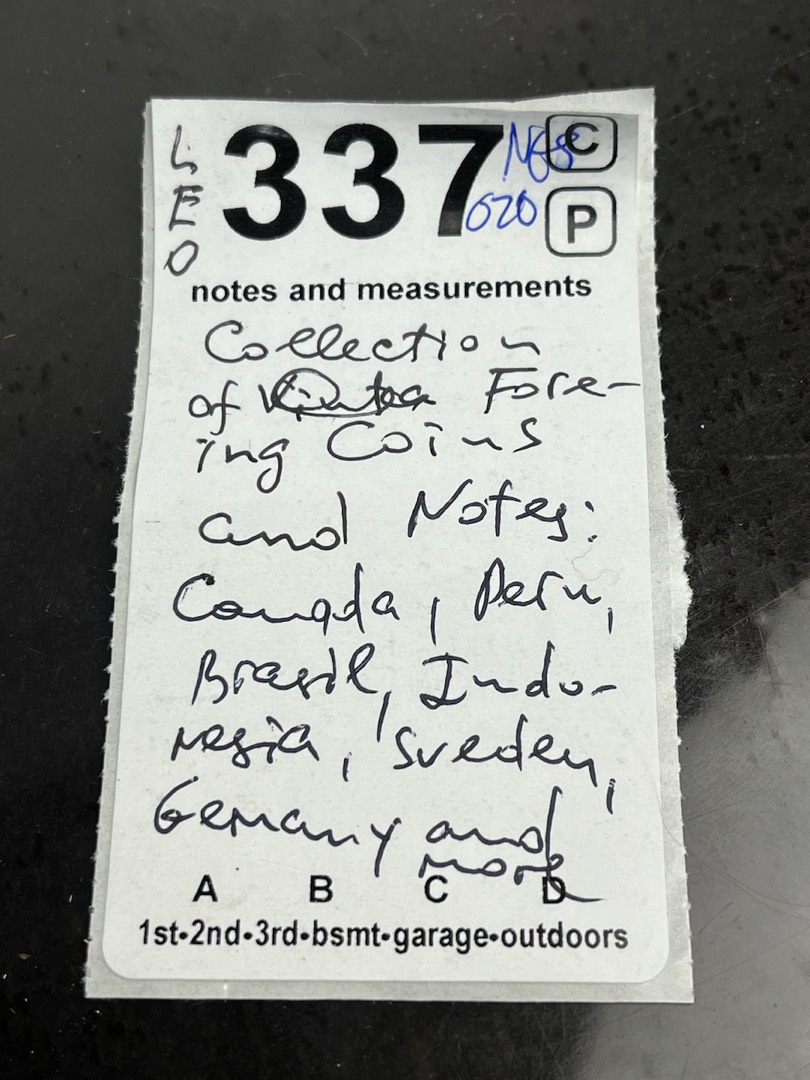 LEO
337
C
020
P
notes and measurements
Collection
of Fore-
ing Coins
and Notes:
Canada, Peru,
Brasil, Indo-
nesia, Sveden,
Gemany and
more
A B C D
1st•2nd•3rd•bsmt•garage•outdoors